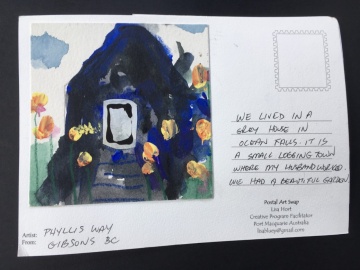 WE LIVED IN A
GREY HOUSE IN
OCEAN FALLS. IT IS
A SMALL LOGGING TOWN
WHERE MY HUSBAND WORKED.
WE HAD A BEAUTIFUL GARDEN
Postal Art Swap
Lisa Hort
Creative Program Facilitator
Port Macquarie Australia
Artist: PHYLLIS WAY
From: GIBSONS BC